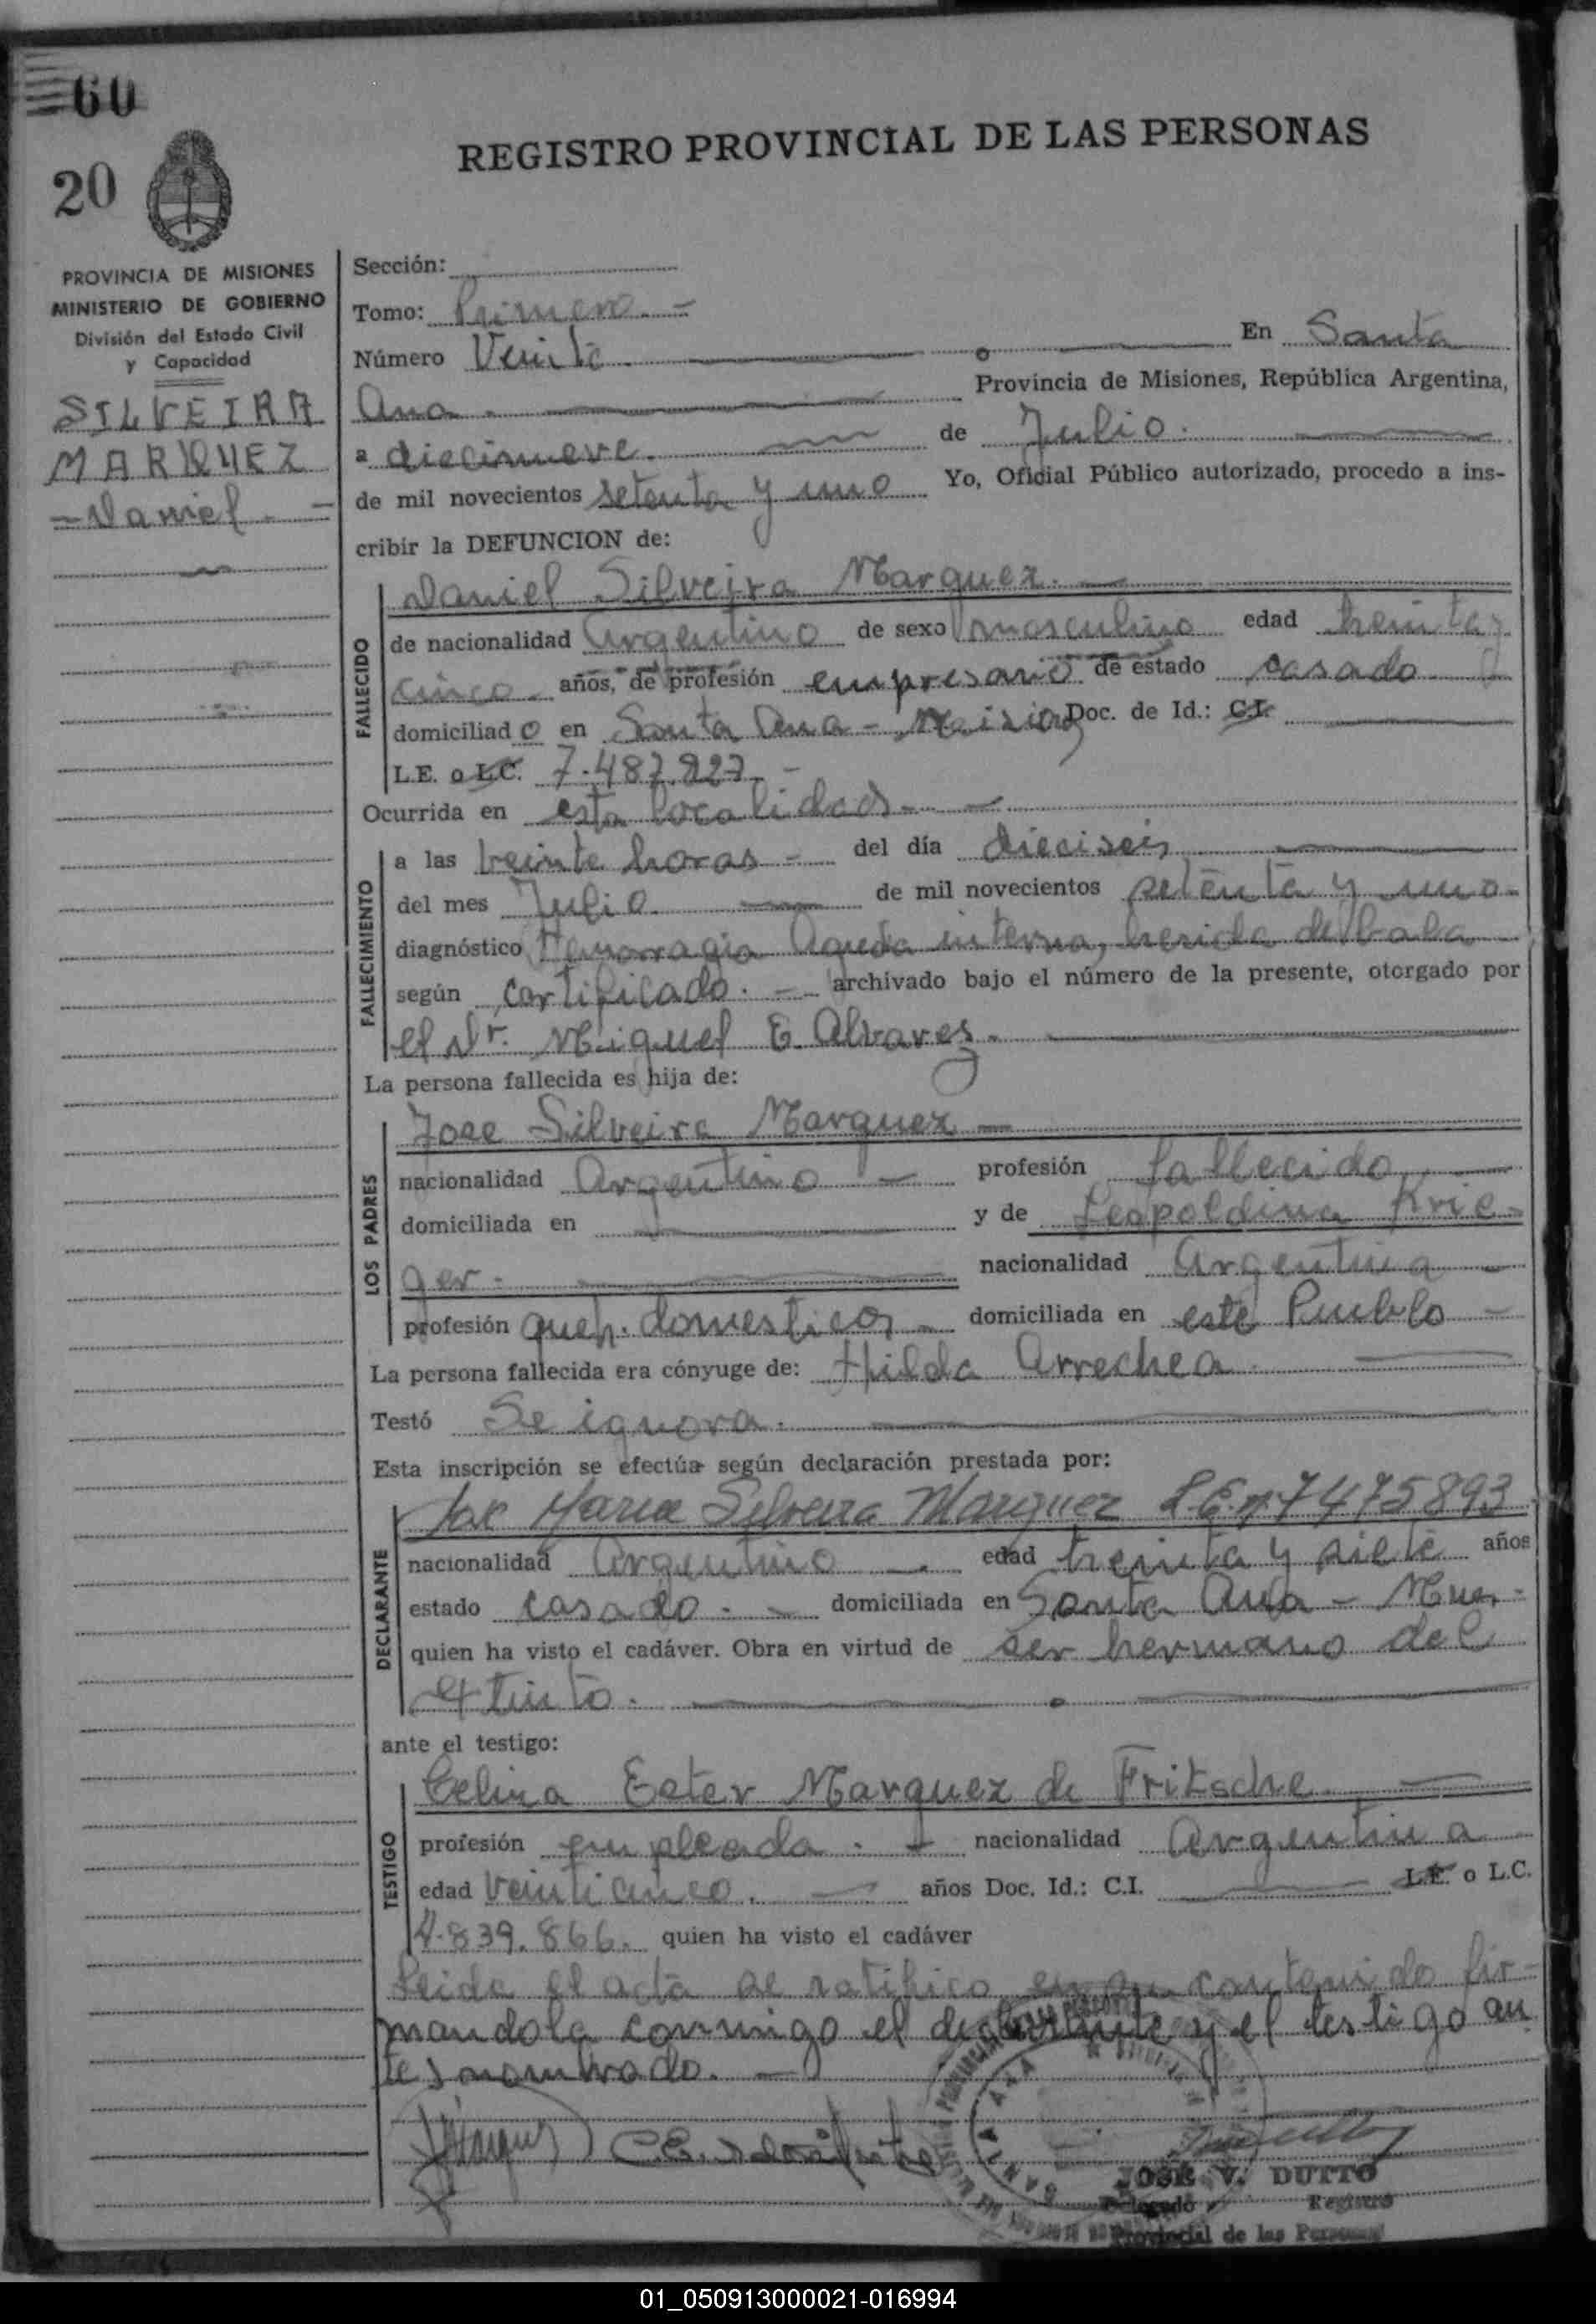 60
20
REGISTRO PROVINCIAL DE LAS PERSONAS
PROVINCIA DE MISIONES
MINISTERIO DE GOBIERNO
División del Estado Civil
y Capacidad
SILVEIRA
MARQUEZ
- Daniel. -
Sección:
Tomo: Primero. -
Número Veinte. En Santa
Ana. Provincia de Misiones, República Argentina,
a diecinueve. de Julio.
de mil novecientos setenta y uno Yo, Oficial Público autorizado, procedo a ins-
cribir la DEFUNCION de:
FALLECIDO
Daniel Silveira Marquez. -
de nacionalidad Argentino de sexo masculino edad treinta y
cinco. años, de profesión empresario de estado casado
domiciliado en Santa Ana - Misiones Doc. de Id.: C.I.
L.E. o L.C. 7.487.827. -
Ocurrida en esta localidad. -
FALLECIMIENTO
a las veinte horas - del día dieciseis
del mes Julio. de mil novecientos setenta y uno.
diagnóstico Hemorragia Aguda interna, herida de bala
según certificado. - archivado bajo el número de la presente, otorgado por
el Dr. Miguel E. Alvarez.
La persona fallecida es hija de:
LOS PADRES
Jose Silveira Marquez -
nacionalidad Argentino - profesión fallecido
domiciliada en y de Leopoldina Krie-
ger. nacionalidad Argentina
profesión queh. domesticos - domiciliada en este Pueblo -
La persona fallecida era cónyuge de: Hilda Arrechea
Testó Se ignora.
Esta inscripción se efectúa según declaración prestada por:
DECLARANTE
José Maria Silveira Marquez L.E. nº 7475893
nacionalidad Argentino - edad treinta y siete años
estado casado. - domiciliada en Santa Ana - Mnes.
quien ha visto el cadáver. Obra en virtud de ser hermano del
extinto.
ante el testigo:
TESTIGO
Celina Ester Marquez de Fritsche.
profesión empleada. - nacionalidad Argentina
edad veinticinco. años Doc. Id.: C.I. L.E. o L.C.
4.839.866. quien ha visto el cadáver
Leida el acta se ratifico en su contenido fir-
mandola conmigo el declarante y el testigo an
tes nombrado. -
SANTA ANA
JOSÉ V. DUTTO
Delegado Registro
Provincial de las Personas
01_050913000021-016994